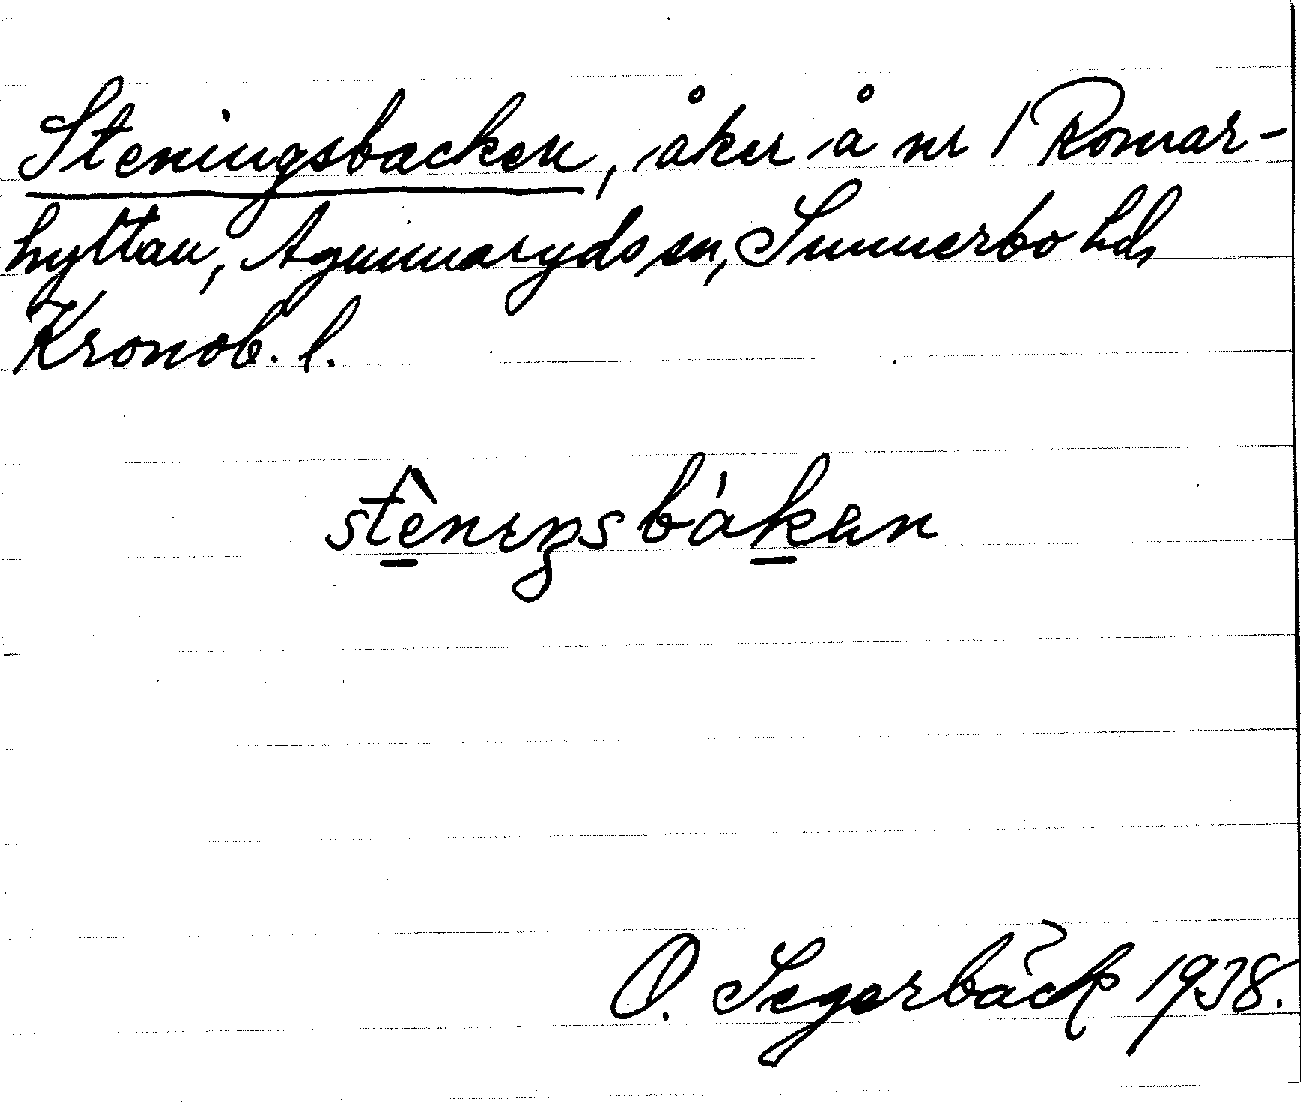 Steningsbacken, åker å nr 1 Romar-
hyttan, Agunnaryds sn, Sunnerbo hd,
Kronob. l.
stèneŋsbákən
O. Segerbäck 1938.